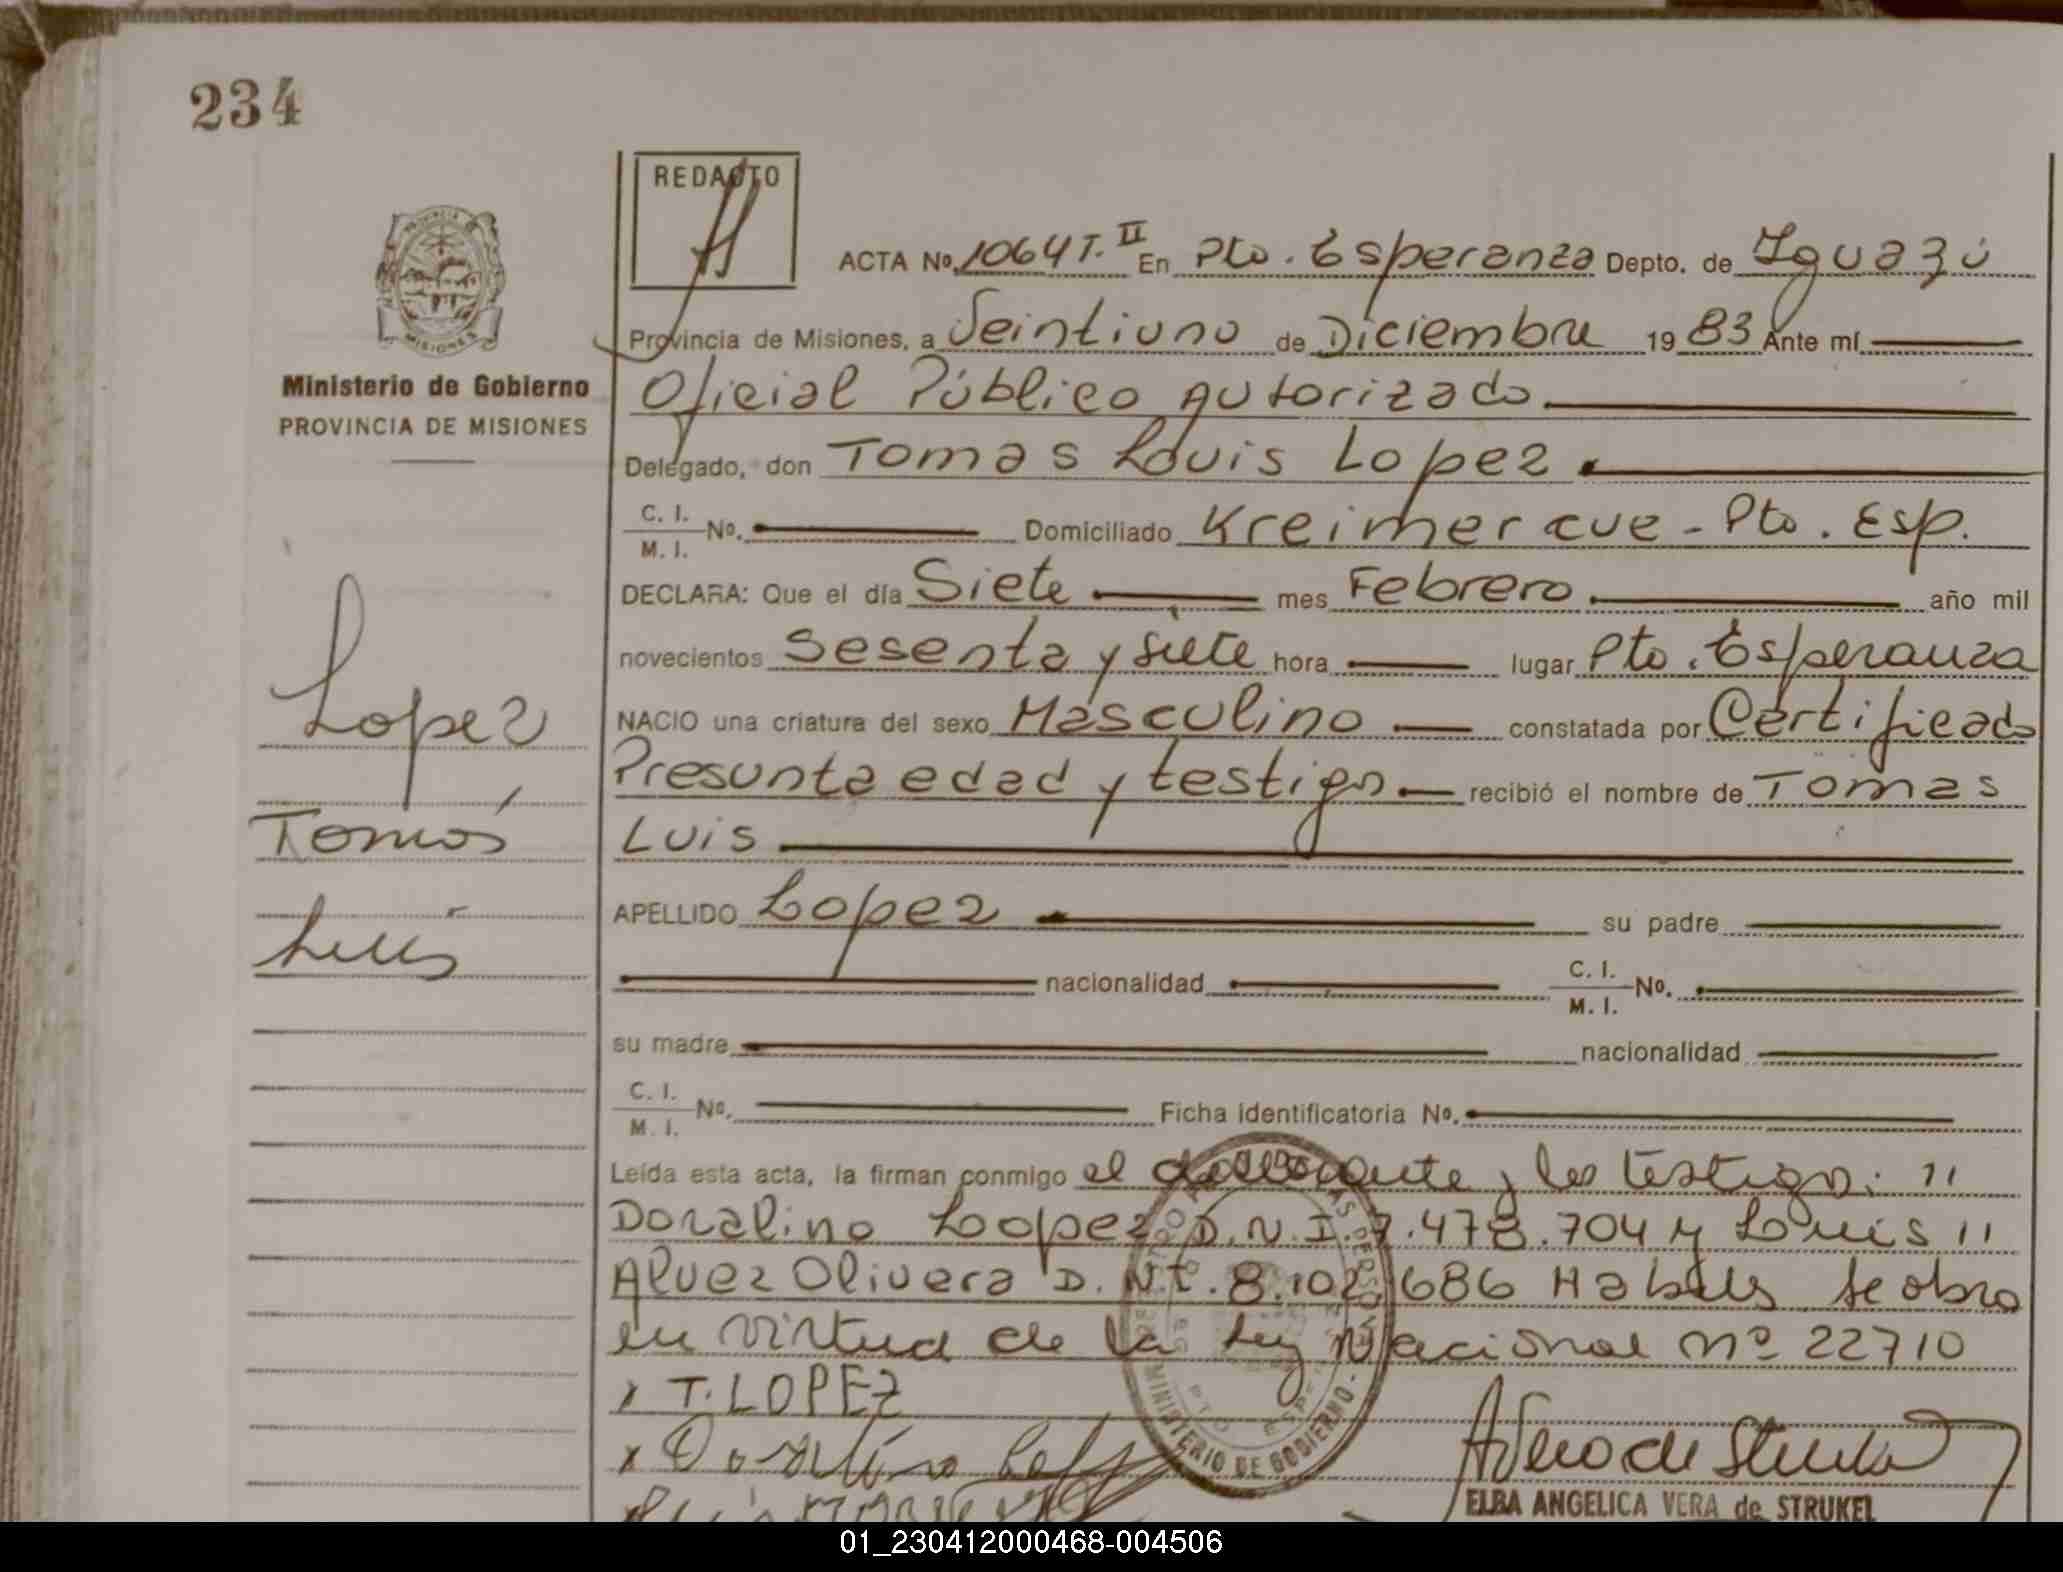 234
REDACTO
ACTA Nº. 1064 T. II En Pto. Esperanza Depto. de Iguazú
Provincia de Misiones, a Veintiuno de Diciembre 1983 Ante mí
Oficial Público Autorizado
Ministerio de Gobierno
PROVINCIA DE MISIONES
Delegado, don Tomas Louis Lopez
C. I.
M. I. Nº. Domiciliado Kreimer cue - Pto. Esp.
DECLARA: Que el día Siete mes Febrero año mil
novecientos Sesenta y siete hora lugar Pto. Esperanza
NACIO una criatura del sexo Masculino constatada por Certificado
Presunta edad y testigo recibió el nombre de Tomas
Luis
APELLIDO Lopez su padre
nacionalidad C. I.
M. I. Nº.
su madre nacionalidad
C. I.
M. I. Nº. Ficha identificatoria Nº.
Leída esta acta, la firman conmigo el declarante y los testigos: "
Doralino Lopez D.N.I. 7.478.704 y Luis "
Alvez Olivera D.N.I. 8.102.686 Habiles se obra
en virtud de la Ley Nacional nº 22710
x T. LOPEZ
ELBA ANGELICA VERA de STRUKEL
Lopez
Tomás
Luis
MINISTERIO DE GOBIERNO.
PROVINCIA DE
MISIONES
01_230412000468-004506